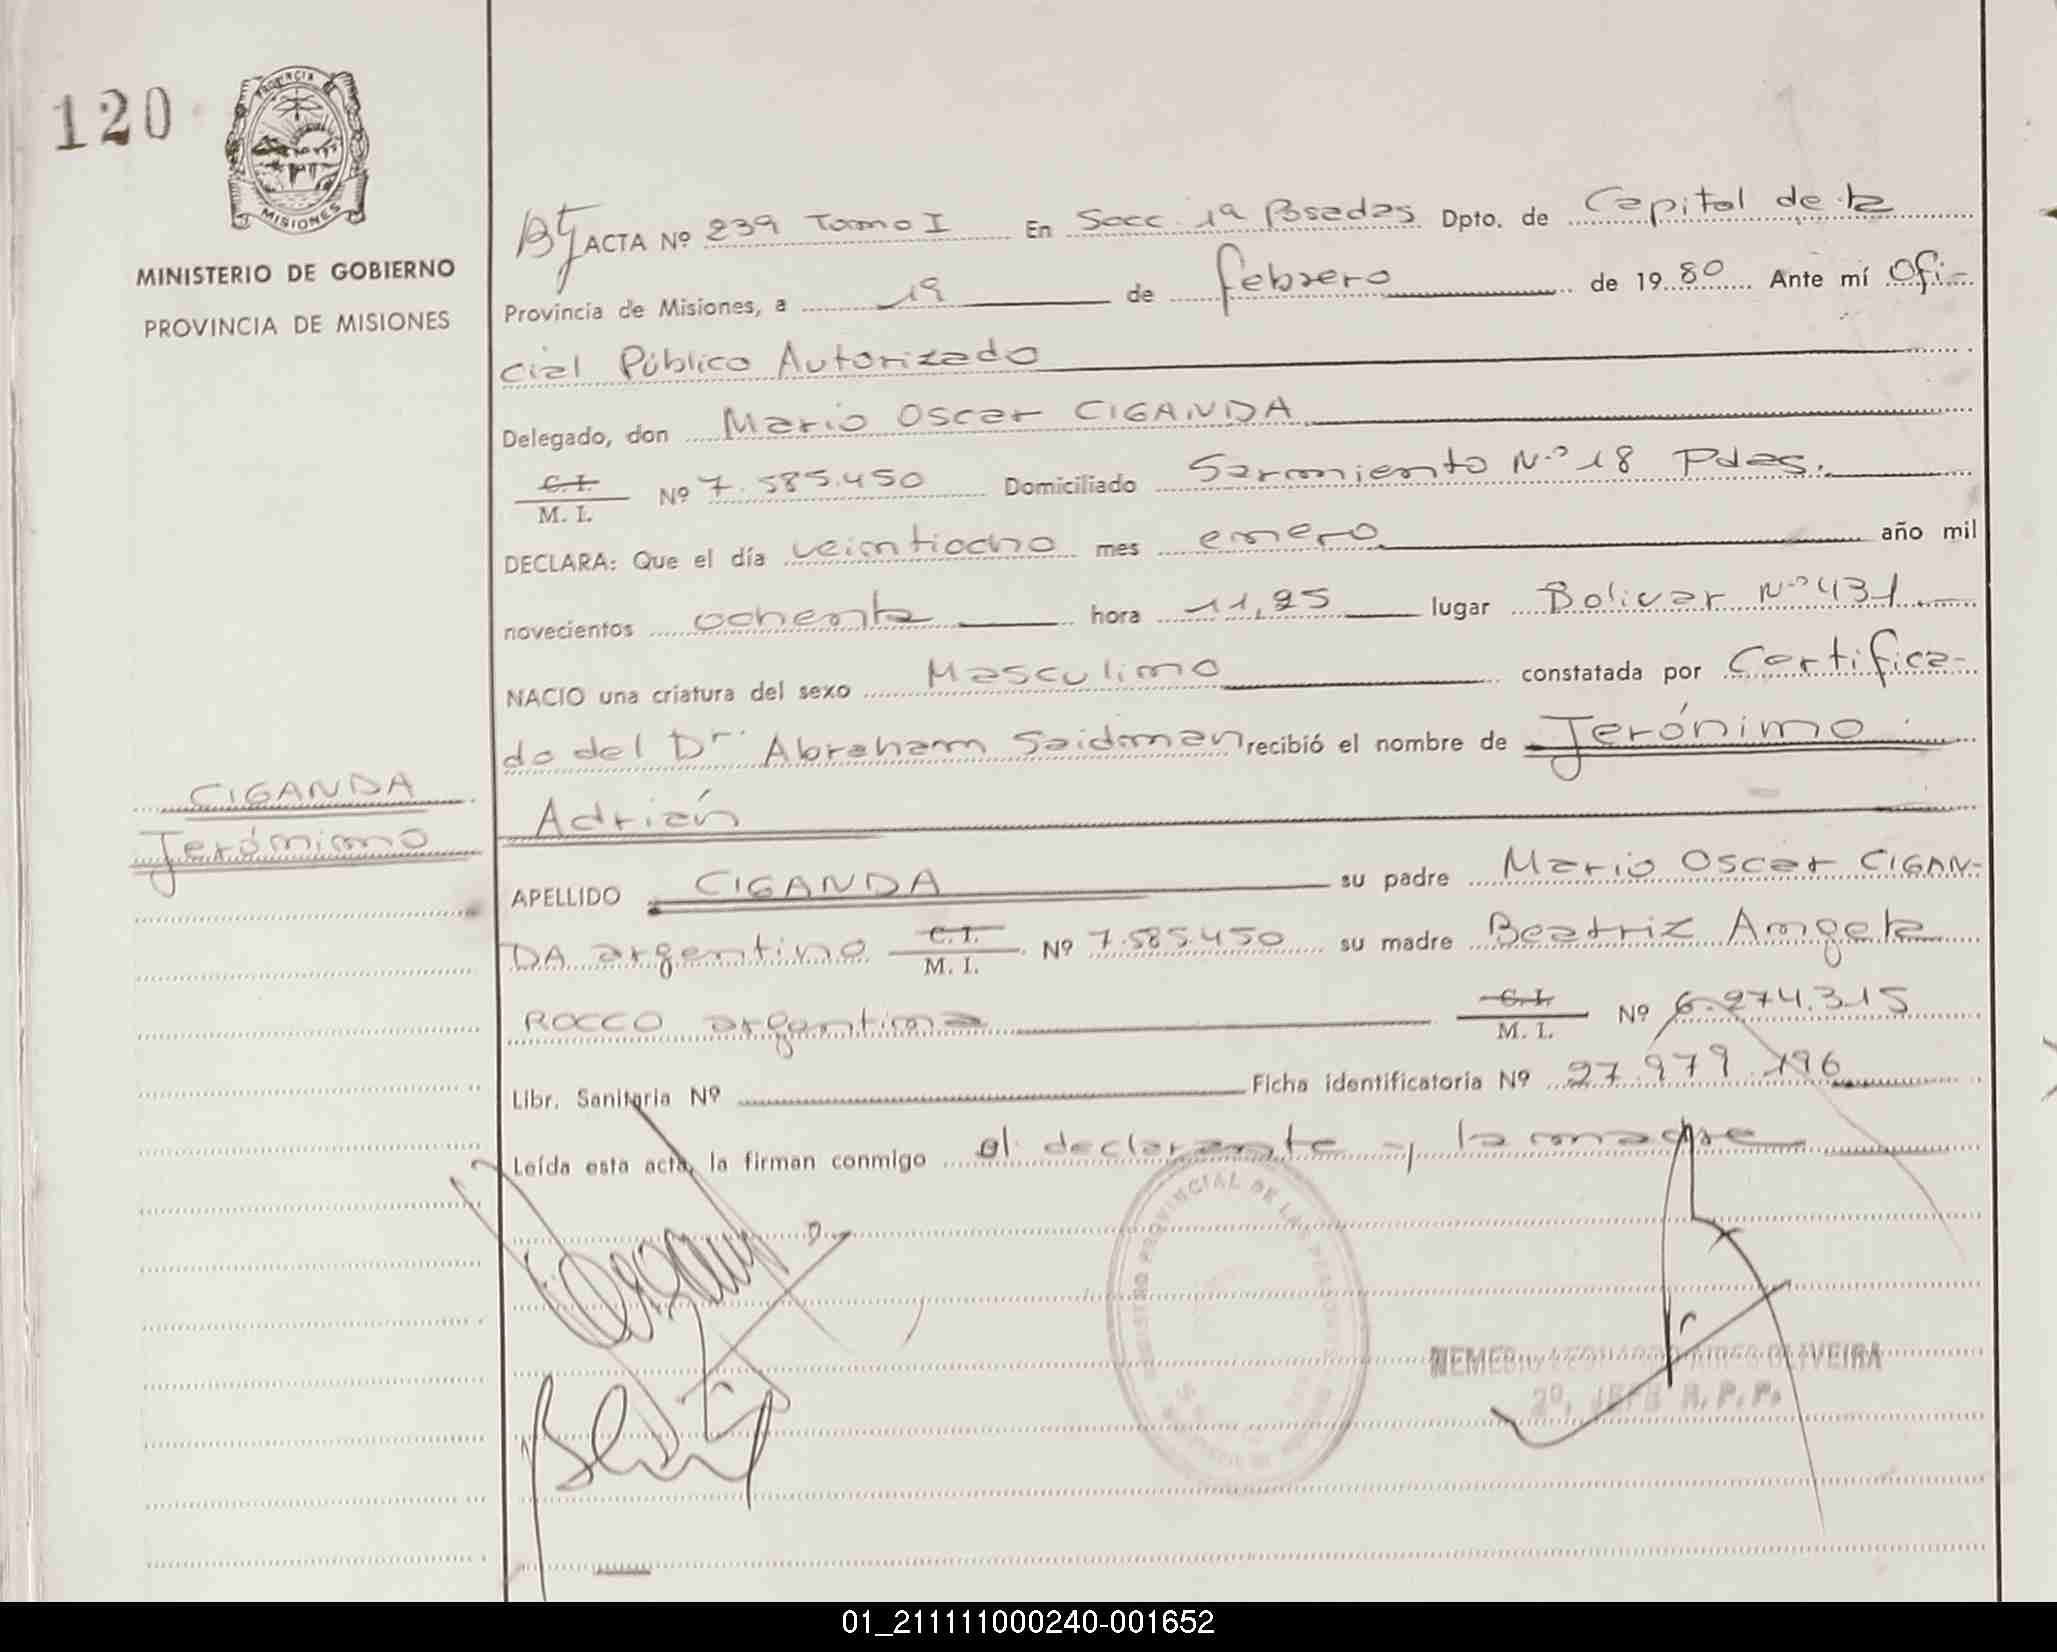 120
PROVINCIA
MISIONES
MINISTERIO DE GOBIERNO
PROVINCIA DE MISIONES
ACTA Nº 239 Tomo I En Secc. 1ª Posadas Dpto. de Capital de la
Provincia de Misiones, a 19 de febrero de 1980 Ante mí Ofi-
cial Público Autorizado
Delegado, don Mario Oscar CIGANDA
C. I.
M. I. Nº 7.585.450 Domiciliado Sarmiento N.º 18 Pdas.
DECLARA: Que el día veintiocho mes enero año mil
novecientos ochenta hora 11,25 lugar Bolivar N.º 431
NACIO una criatura del sexo Masculino constatada por Certifica-
do del Dr. Abraham Saidman recibió el nombre de Jerónimo
Adrián
CIGANDA
Jerónimo
APELLIDO CIGANDA su padre Mario Oscar CIGAN-
DA argentino C. I.
M. I. Nº 7.585.450 su madre Beatriz Angela
ROCCO argentina C. I.
M. I. Nº 6.274.315
Libr. Sanitaria Nº Ficha identificatoria Nº 27.979.196
Leída esta acta, la firman conmigo el declarante y la madre
REGISTRO PROVINCIAL DE LAS PERSONAS
NEMESIO OLIVEIRA
2º. JEFE R. P. P.
01_211111000240-001652